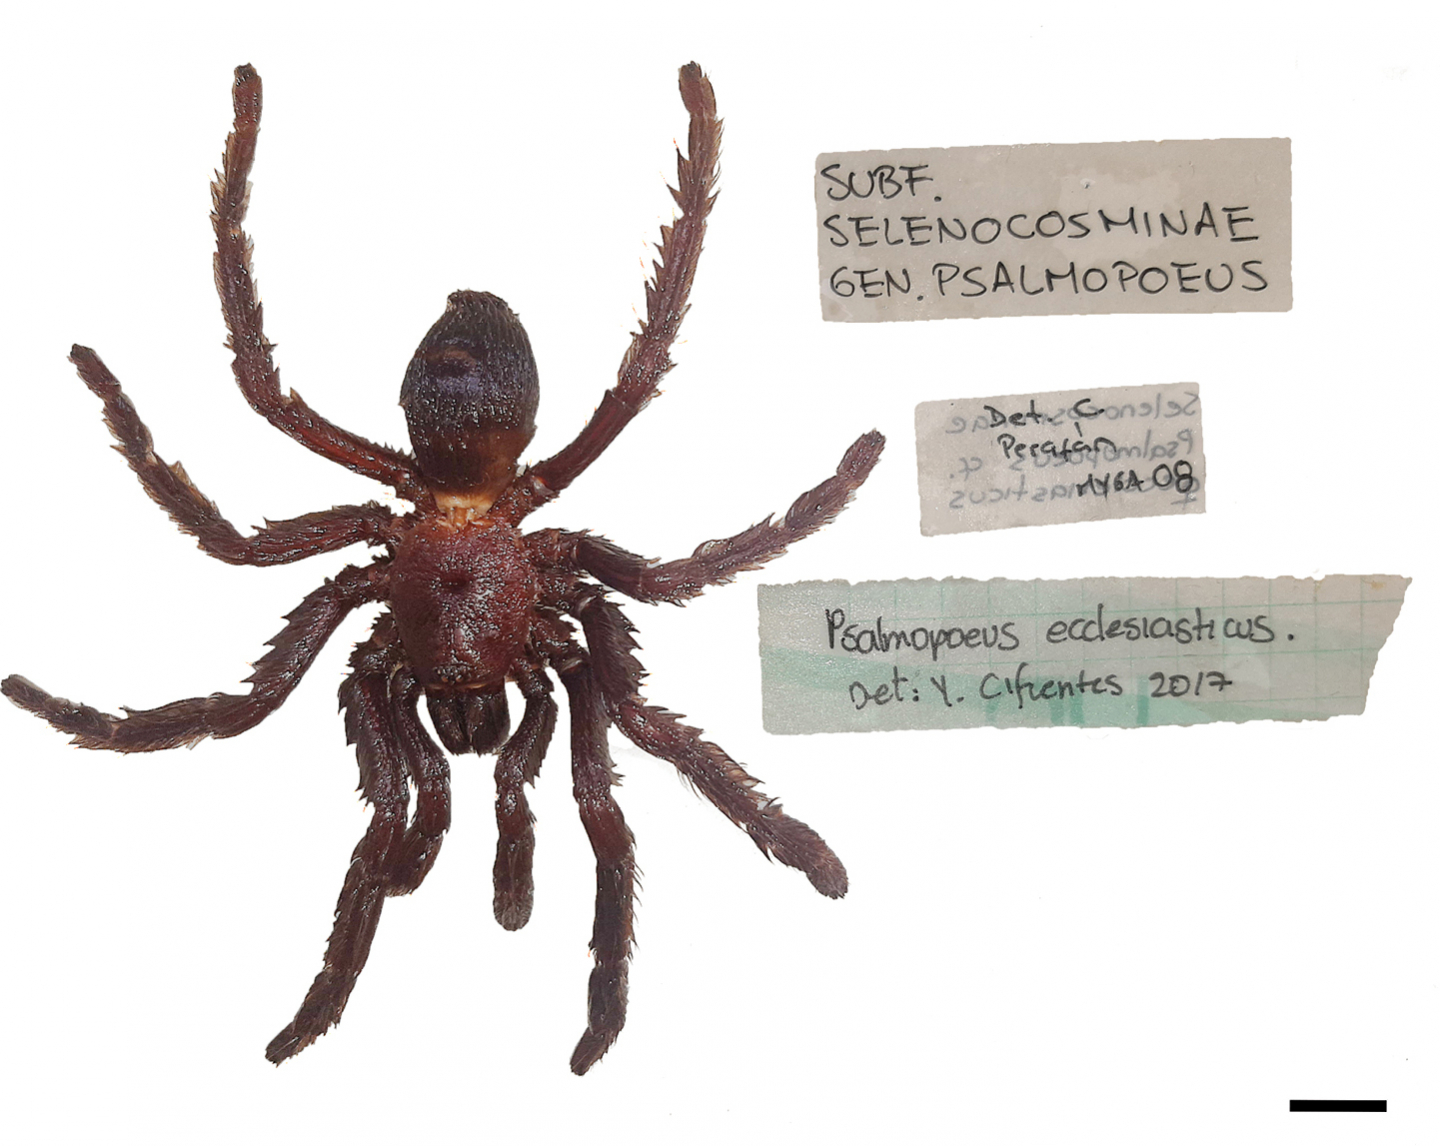 SUBF.
SELENOCOSMINAE
GEN. PSALMOPOEUS
Det. C.
Perafán
MYGA 08
Psalmopoeus ecclesiasticus.
Det: Y. Cifuentes 2017